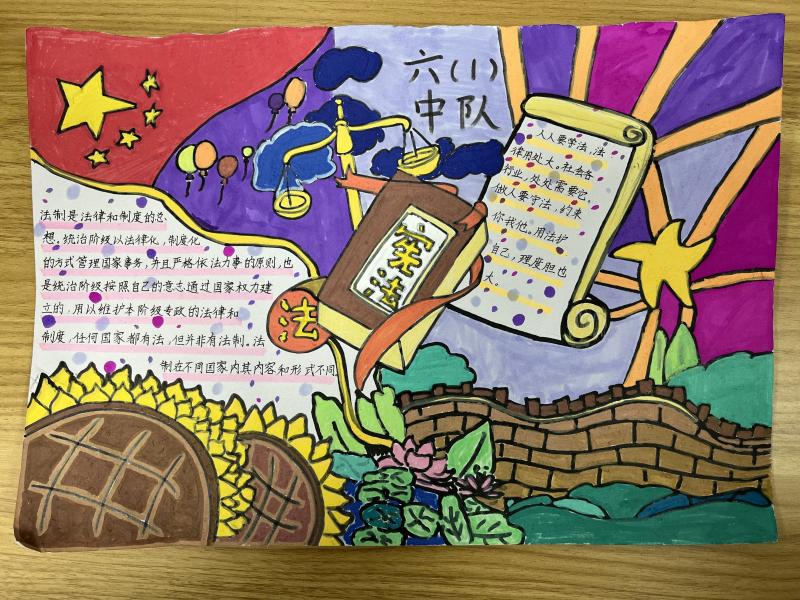 六(1)
中队
人人要学法，法
律用处大。社会各
行业，处处需要它，
做人要守法，约束
你我他。用法护
自己，理度胆也
大。
宪法
法
法制是法律和制度的总
想。统治阶级以法律化，制度化
的方式管理国家事务，并且严格依法办事的原则，也
是统治阶级按照自己的意志通过国家权力建
立的，用以维护本阶级专政的法律和
制度，任何国家都有法，但并非有法制。法
制在不同国家内其内容和形式不同